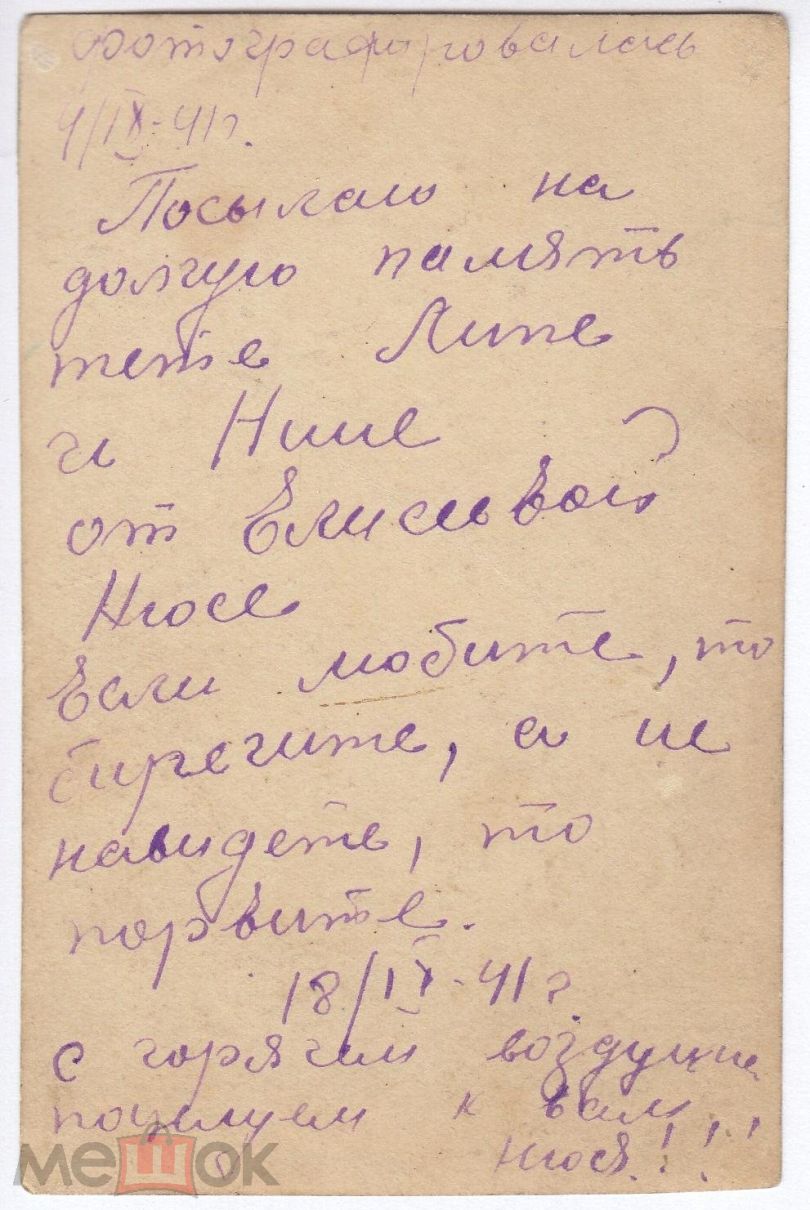 фотографировалась
4/IX-41г.
Посылаю на
долгую память
тете Липе
и Нине
от Елисевой
Нюсе
Если любите, то
бирегите, а не
навидете, то
порвите.
18/IX-41г.
с горячим воздушне
поцелуем к вам,
Нюся!!!
мешок